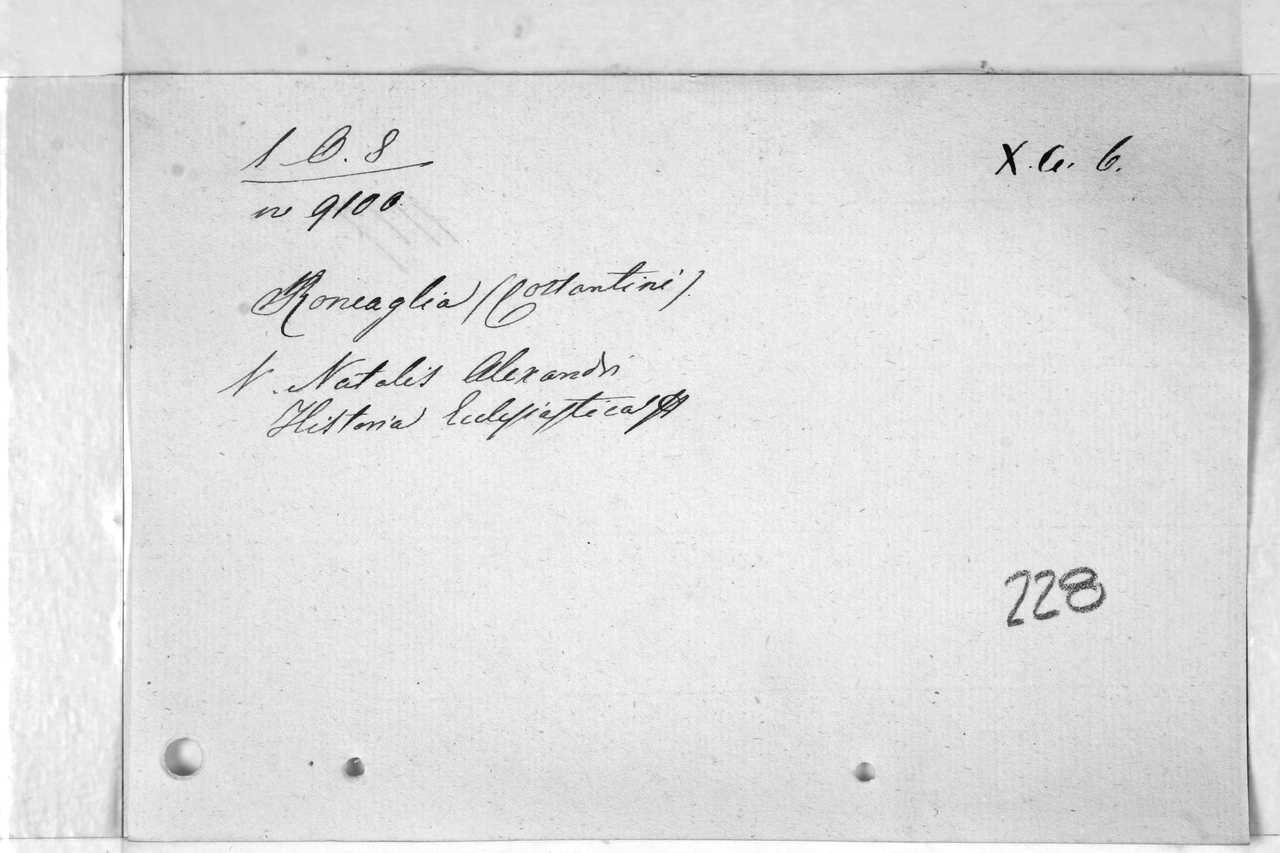 1 B. 8
X. G. 6.
n 9100
Roncaglia (Costantini).
V. Natalis Alexandri
Historia Ecclesiastica
228